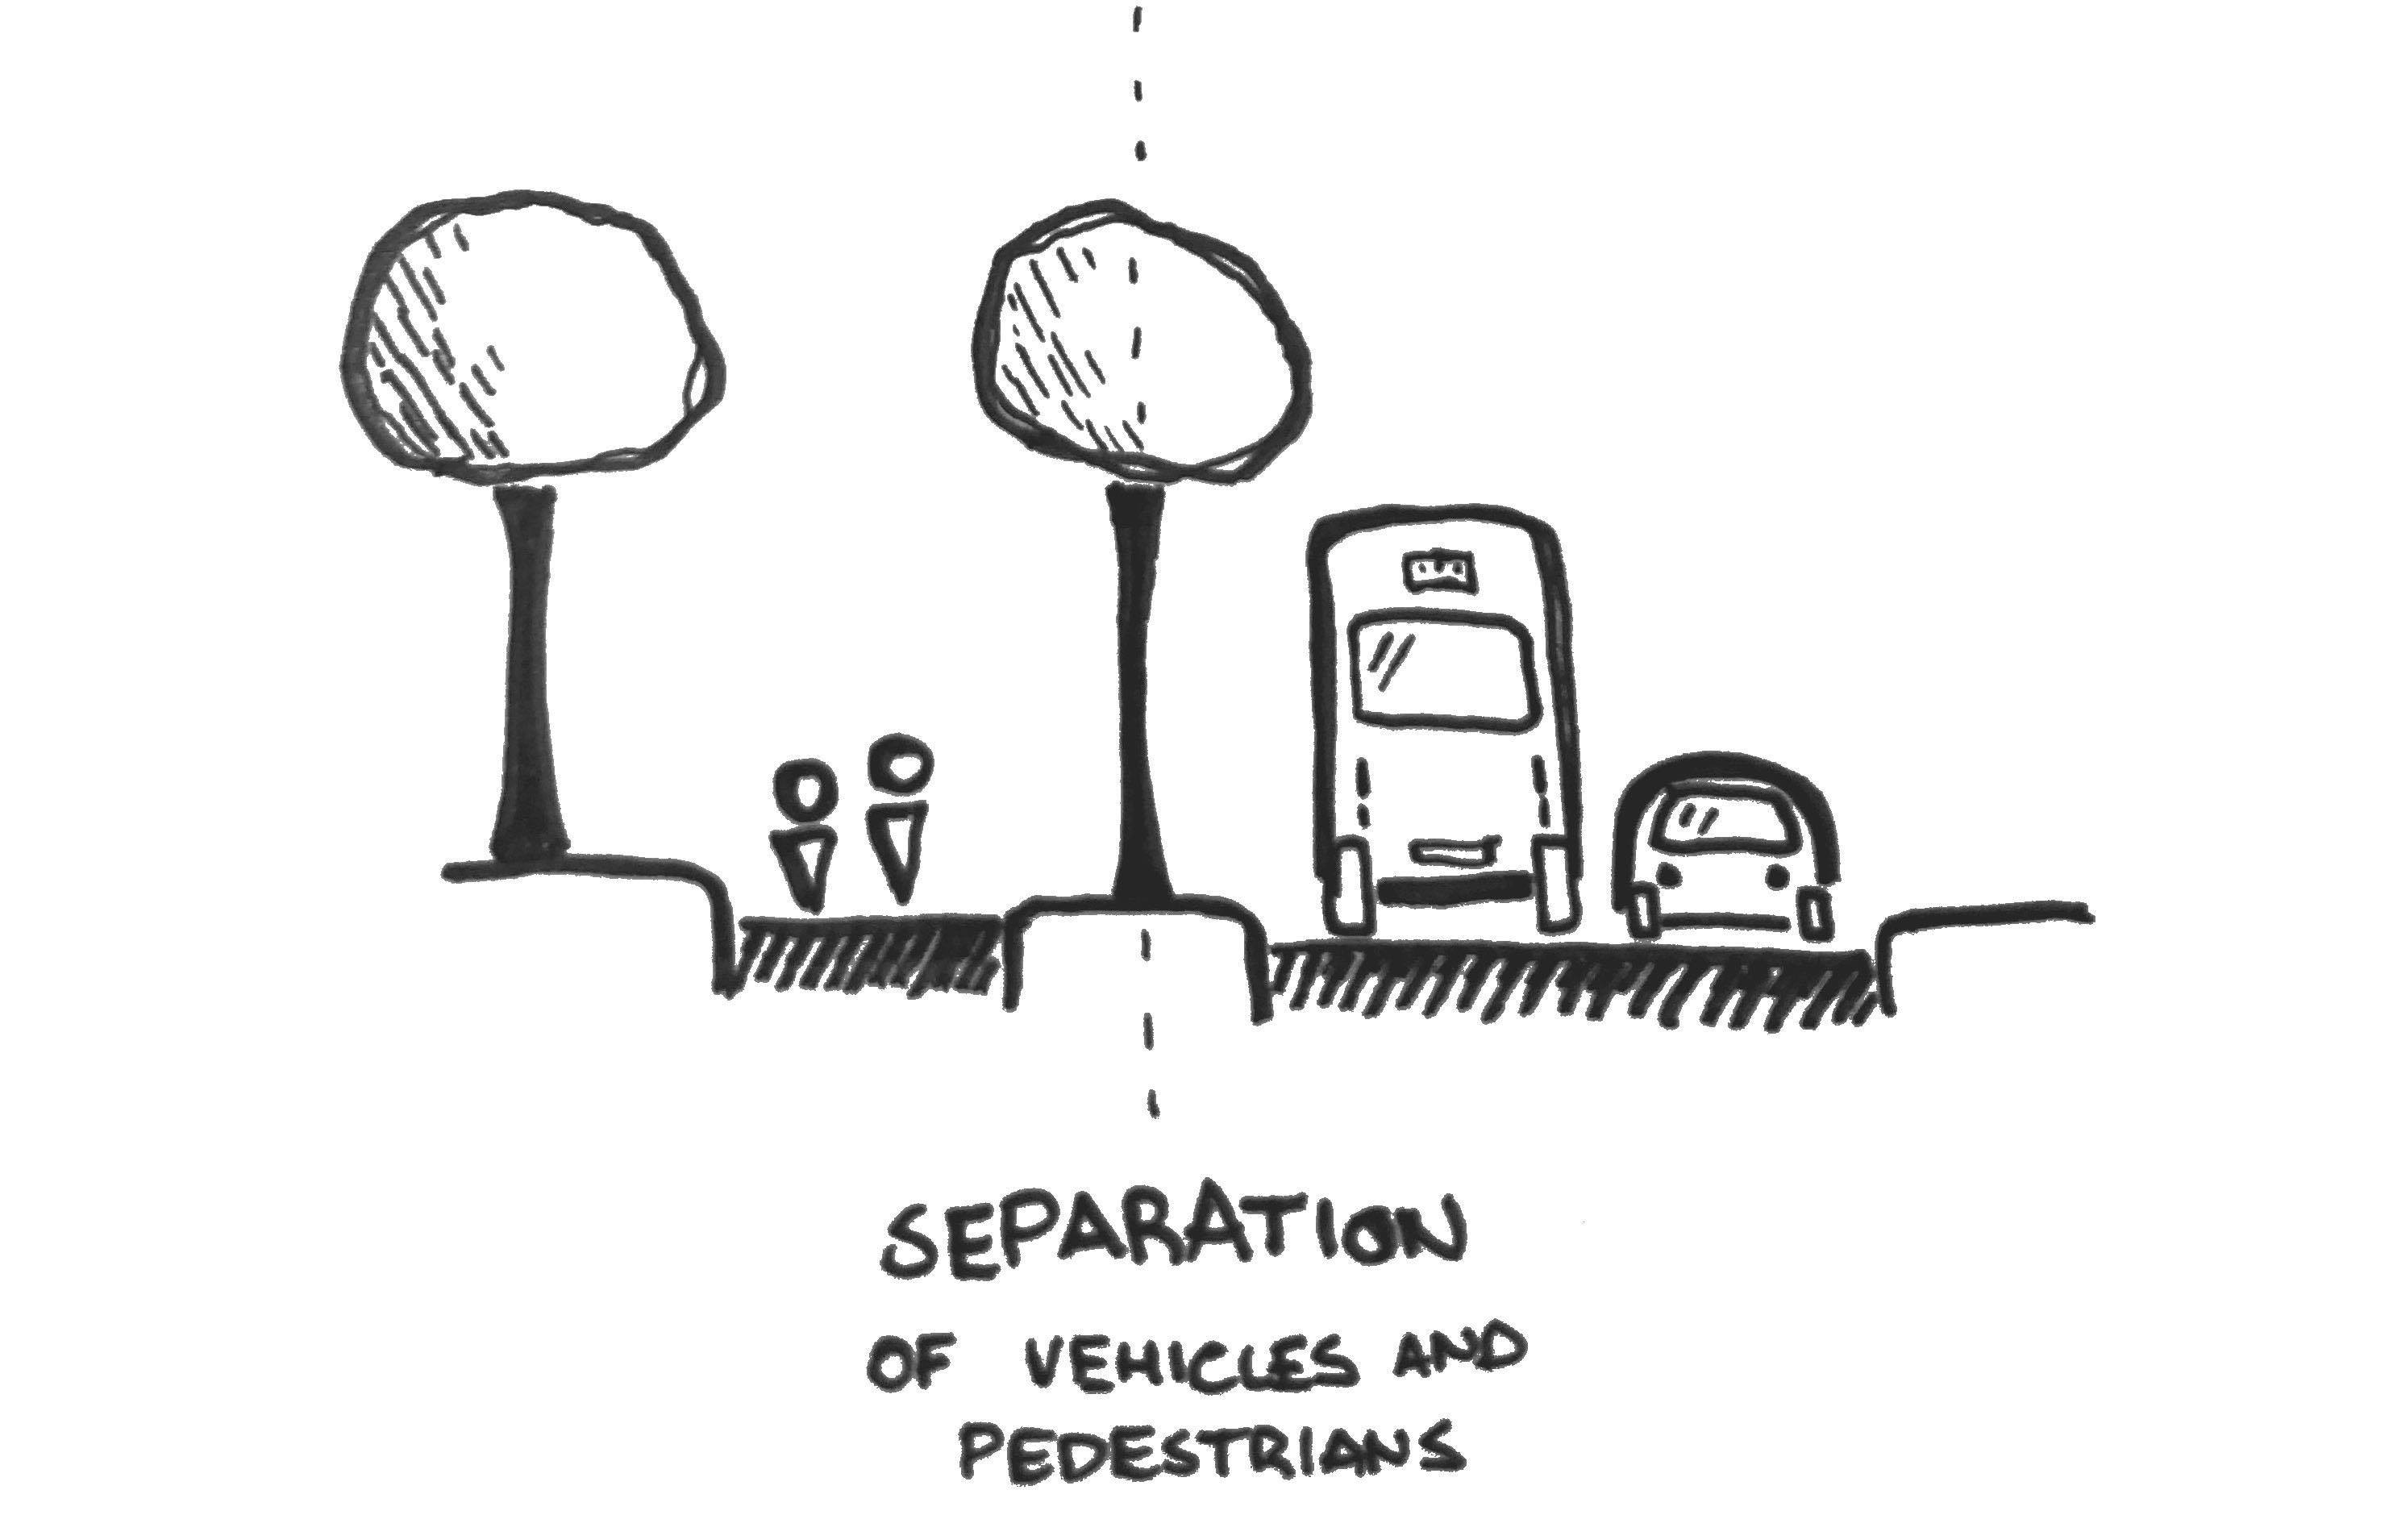 SEPARATION
OF VEHICLES AND
PEDESTRIANS